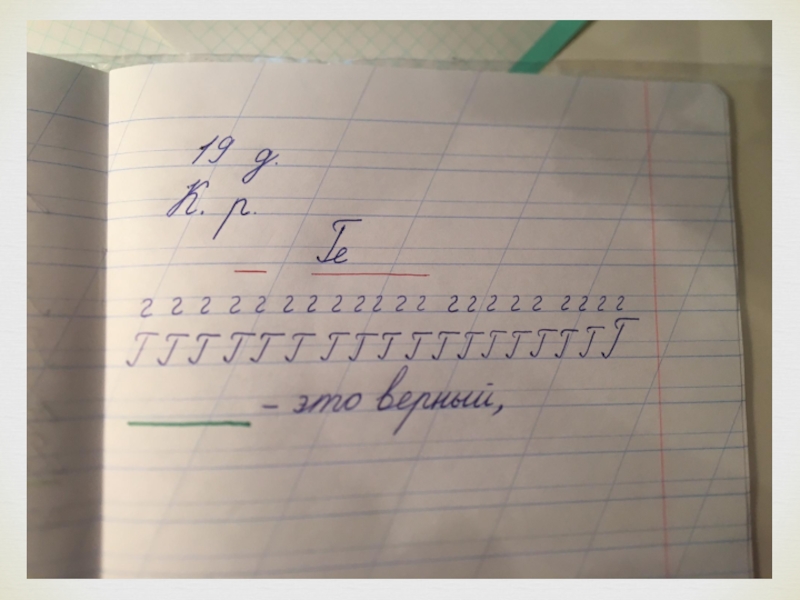 19 д.
К. р.
Ге
г г г г г г г г г г г г г г г г г г г г г
Г Г Г Г Г Г Г Г Г Г Г Г Г Г Г Г Г Г
– это верный,